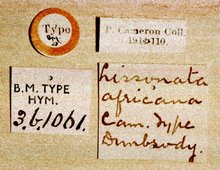 Type
P. Cameron Coll.
1914-110.
B.M. TYPE
HYM.
3.b.1061.
Lissonata
africana
Cam. Type
Dunbrody.